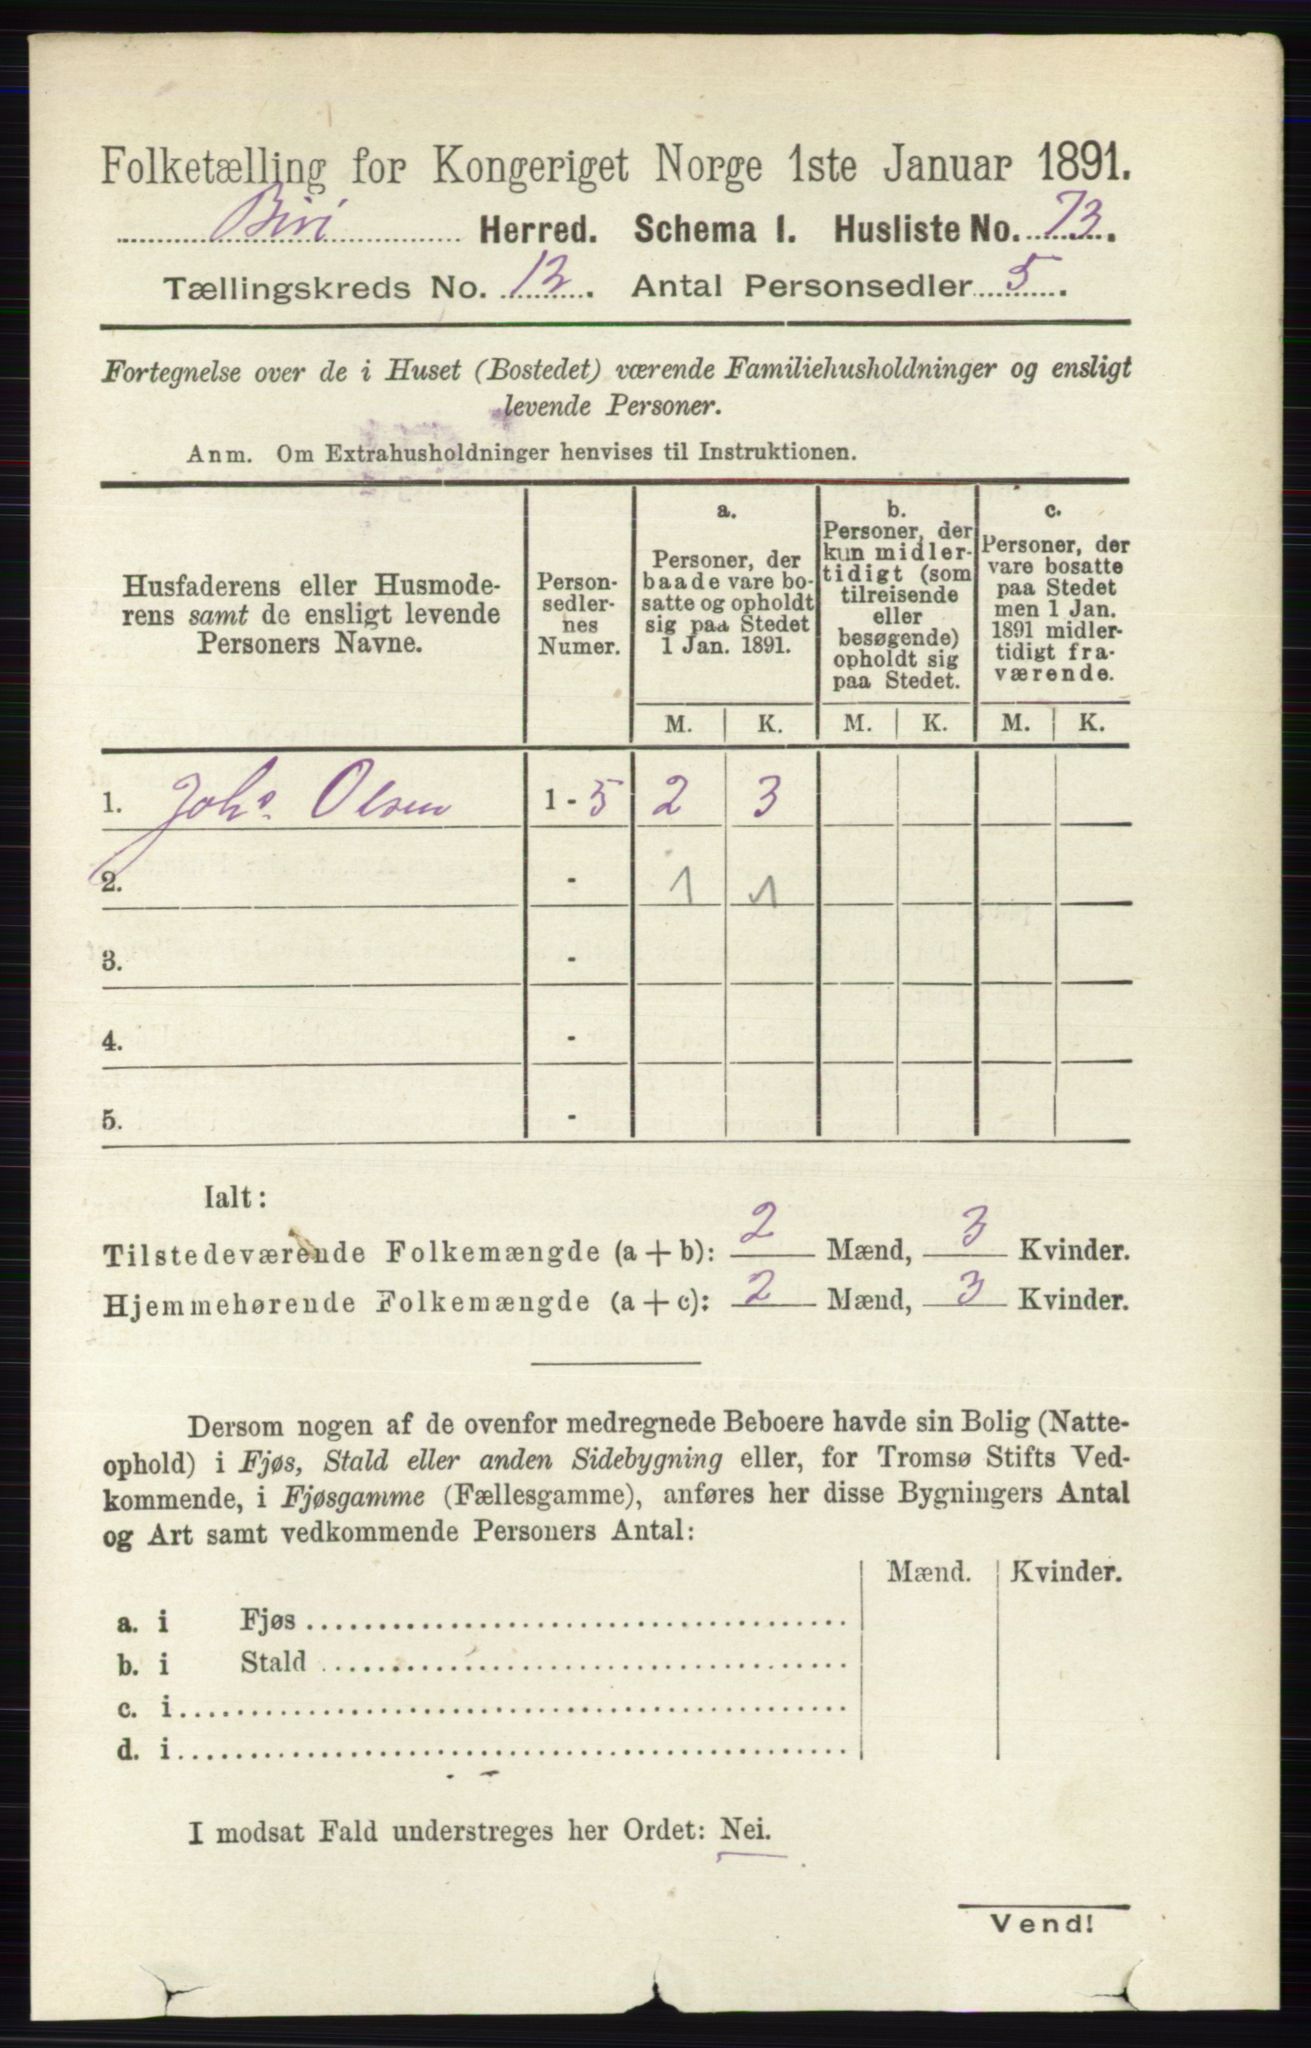 Folketælling for Kongeriget Norge 1ste Januar 1891.
Biri Herred. Schema I. Husliste No. 73.
Tællingskreds No. 13. Antal Personsedler 5.
Fortegnelse over de i Huset (Bostedet) værende Familiehusholdninger og ensligt
levende Personer.
Anm. Om Extrahusholdninger henvises til Instruktionen.
Husfaderens eller Husmode-
rens samt de ensligt levende
Personers Navne.
Person-
sedler-
nes
Numer.
a.
Personer, der
baade vare bo-
satte og opholdt
sig paa Stedet
1 Jan. 1891.
b.
Personer, der
kun midler-
tidigt (som
tilreisende
eller
besøgende)
opholdt sig
paa Stedet.
c.
Personer, der
vare bosatte
paa Stedet
men 1 Jan.
1891 midler-
tidigt fra-
værende.
M. K. M. K. M. K.
1. Johs. Olsen 1 - 5 2 3
2. - 1 1
3. -
4. -
5. -
Ialt:
Tilstedeværende Folkemængde (a + b): 2 Mænd, 3 Kvinder.
Hjemmehørende Folkemængde (a + c): 2 Mænd, 3 Kvinder.
Dersom nogen af de ovenfor medregnede Beboere havde sin Bolig (Natte-
ophold) i Fjøs, Stald eller anden Sidebygning eller, for Tromsø Stifts Ved-
kommende, i Fjøsgamme (Fællesgamme), anføres her disse Bygningers Antal
og Art samt vedkommende Personers Antal:
Mænd. Kvinder.
a. i Fjøs
b. i Stald
c. i
d. i
I modsat Fald understreges her Ordet: Nei.
Vend!